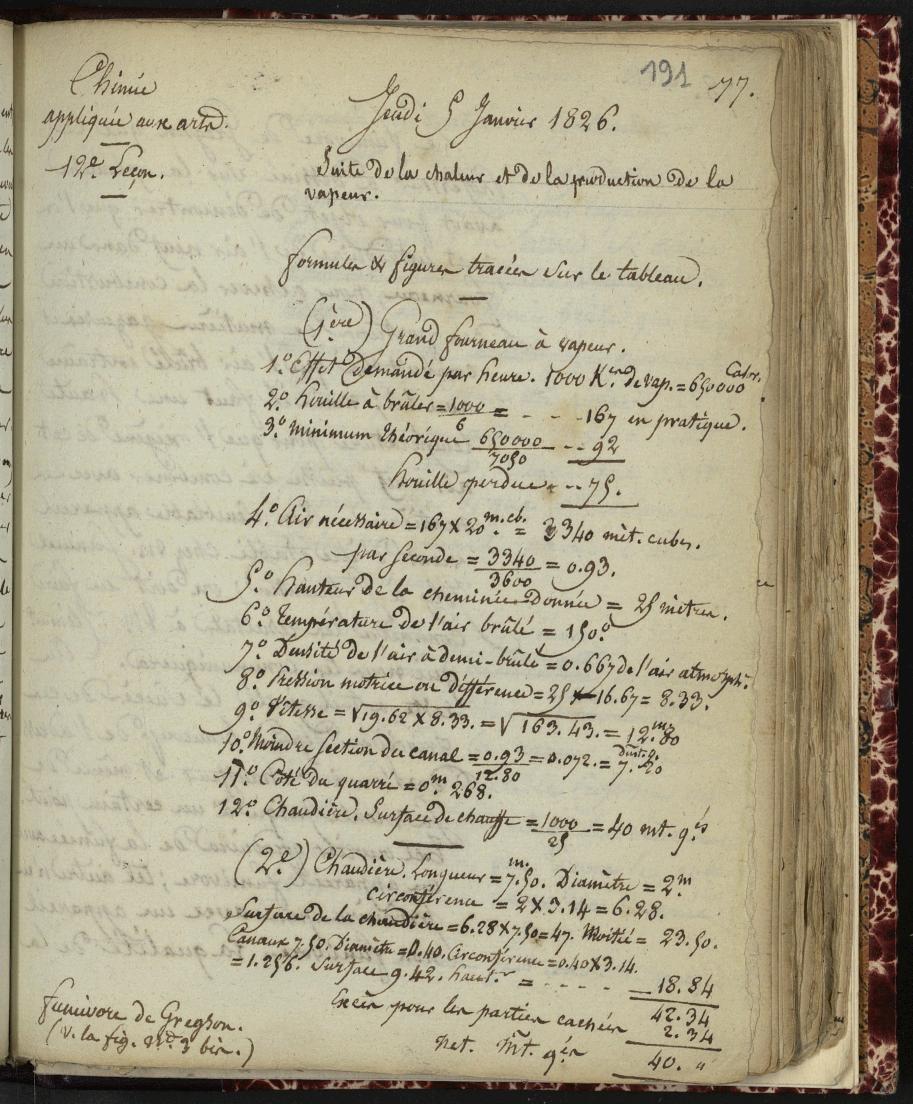 191 77.
Chimie
appliquée aux arts.
12e. Leçon.
Jeudi 5 Janvier 1826.
Suite de la chaleur et de la production de la
vapeur.
Formules & figures tracées sur le tableau.
(1ère) Grand fourneau à vapeur.
1º. Effet demandé par heure. 1000 Kes. de vap. = 650000 Calor.
2º. houille à brûler = 1000/6 = - - - 167 en pratique.
3º. minimum théorique 650000/7050 - - 92
houille perdue - - - 75.
4º. Air nécessaire = 167 X 20 m. cb. = 3340 mèt. cubes.
par seconde = 3340/3600 = 0.93.
5º. hauteur de la cheminée donnée = 25 mètres.
6º. température de l'air brûlé = 150º.
7º. Densité de l'air à demi-brûlé = 0.667 de l'air atmosph.
8º. Pression motrice ou différence = 25 - 16.67 = 8.33.
9º. Vitesse = √19.62 X 8.33. = √163.43. = 12.m80
10º. Moindre section du canal = 0.93/12.80 = 0.072. = 7.20
11º. Côté du quarré = 0m. 268.
12º. Chaudière. Surface de chauffe = 1000/25 = 40 mt. qés
(2e.) Chaudière. Longueur = 7.m50. Diamètre = 2m
circonférence = 2 X 3.14 = 6.28.
Surface de la chaudière = 6.28 X 7.50 = 47. Moitié = 23.50.
Canaux 7.50. Diamètre = 0.40. Circonférence = 0.40 X 3.14.
= 1.256. Surface 9.42. = - - - - - 18.84
42.34
Excès pour les parties cachées 2.34
net. mt. qés 40. "
fumivore de Gregson.
(v. la fig. 3 bis.)